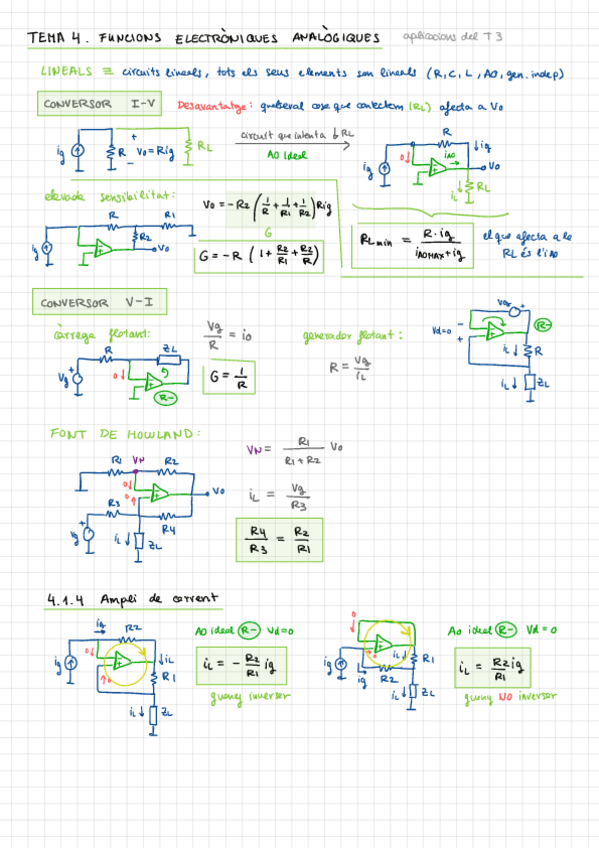 TEMA 4. FUNCIONS ELECTRÒNIQUES ANALÒGIQUES aplicacions del T3
LINEALS ≡ circuits lineals, tots els seus elements son lineals (R, C, L, AO, gen. indep)
CONVERSOR I-V Desavantatge: qualsevol cosa que conectem (RL) afecta a Vo
ig + R Vo = Rig - RL
circuit que intenta ↓ RL
AO ideal
R ↓ig
ig 0↓ iAO Vo
iL↓ RL
elevada sensibilitat:
R R1
ig R2 Vo
Vo = -R2 (1/R + 1/R1 + 1/R2) Rig
G
G = -R (1 + R2/R1 + R2/R)
RL min = R·ig / iAOMAX + ig
el que afecta a la
RL és l'iAO
CONVERSOR V-I
càrrega flotant:
R ZL
Vg + 0↓ R-
Vg/R = io
G = 1/R
generador flotant:
R = Vg/iL
Vg +
Vd=0 - + R-
iL↓ R
iL↓ ZL
FONT DE HOWLAND:
R1 VN R2
0↓ Vo
R3 0 R4
Vg + iL↓ ZL
VN = R1 / R1+R2 Vo
iL = Vg/R3
R4/R3 = R2/R1
4.1.4 Ampli de corrent
ig → R2
ig 0↓ ↓iL
0 R1
iL↓ ZL
AO ideal R- Vd=0
iL = - R2/R1 ig
guany inversor
0
ig iL↓ R1
ig R2
iL↓ ZL
Ao ideal R- Vd=0
iL = R2ig/R1
guany NO inversor